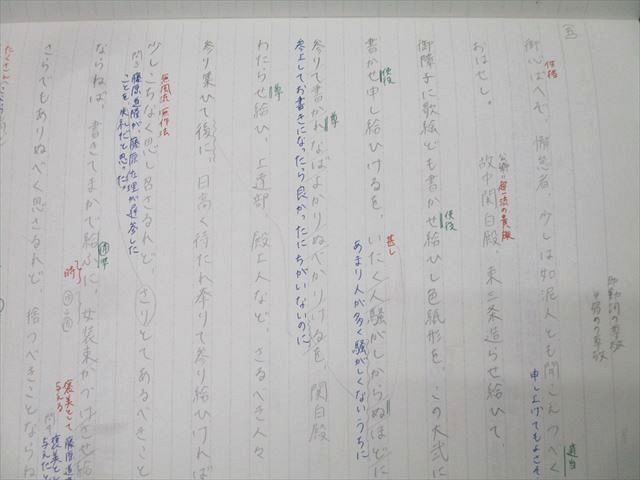 助動詞の尊敬
四段の尊敬
五
御心ばへぞ、懈怠者、少しは如泥人とも聞こえつべく
性格
申し上げてもよさそ
適当
おはせし。故中関白殿、東三条造らせ給ひて、
超一流の貴族
御障子に歌絵ども書かせ給ひし色紙形を、この大弐に
使役
書かせ申し給ひけるを、いたく人騒がしからぬほどに
使役
甚し
あまり人が多く騒がしくないうちに
参りて書かれなばよかりぬべかりけるを、関白殿
尊
参上してお書きになったら良かったにちがいないのに
わたらせ給ひ、上達部、殿上人など、さるべき人々
尊
参り集ひて後に、日高く待たれ奉りて参り給ひければ
少しこちなく思し召さるれど、さりとてあるべきこと
無風流 無作法
藤原道隆が、藤原佐理が遅参した
ことを失礼だと思った。
ならねば、書きてまかで給ふに、女装束かづけさせ給
時
褒美として
与える
さらでもありぬべく思さるれど、捨つべきことならね